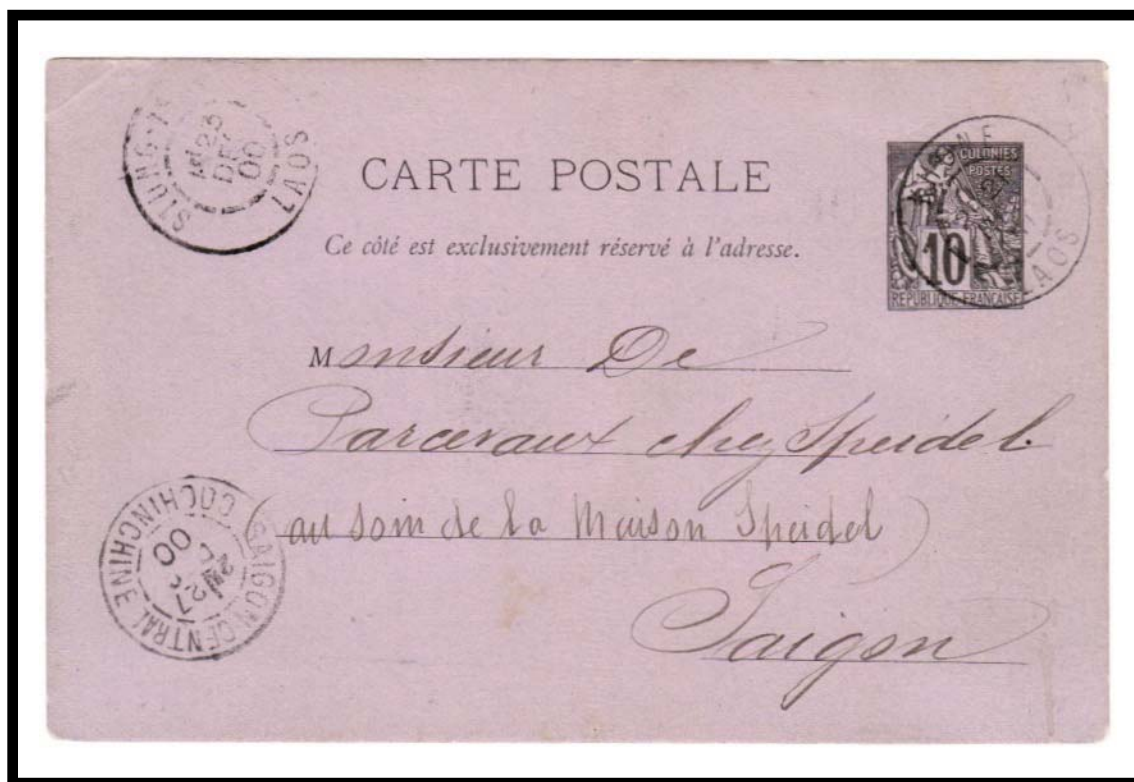 STUNG-
25
DE
00
LAOS
CARTE POSTALE
Ce côté est exclusivement réservé à l'adresse.
COLONIES
POSTES
10
RÉPUBLIQUE FRANÇAISE
LAOS
Monsieur De
Parcevaux chez Speidel
(au soin de la Maison Speidel)
Saigon
SAIGON CENTRAL COCHINCHINE
27
00